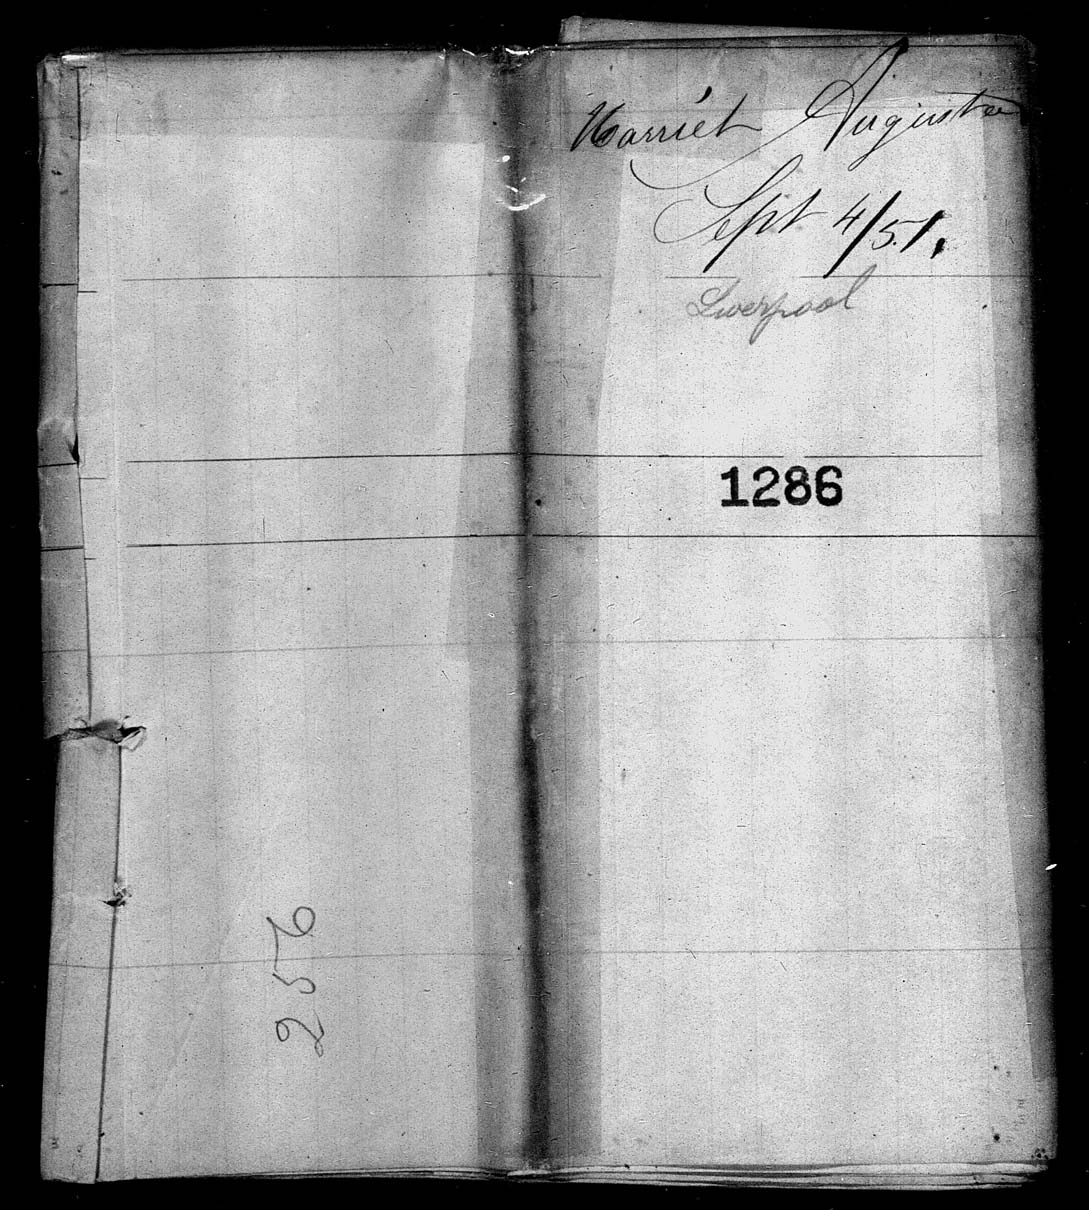 Harriet Augusta
Sept 4/51.
Liverpool
1286
256